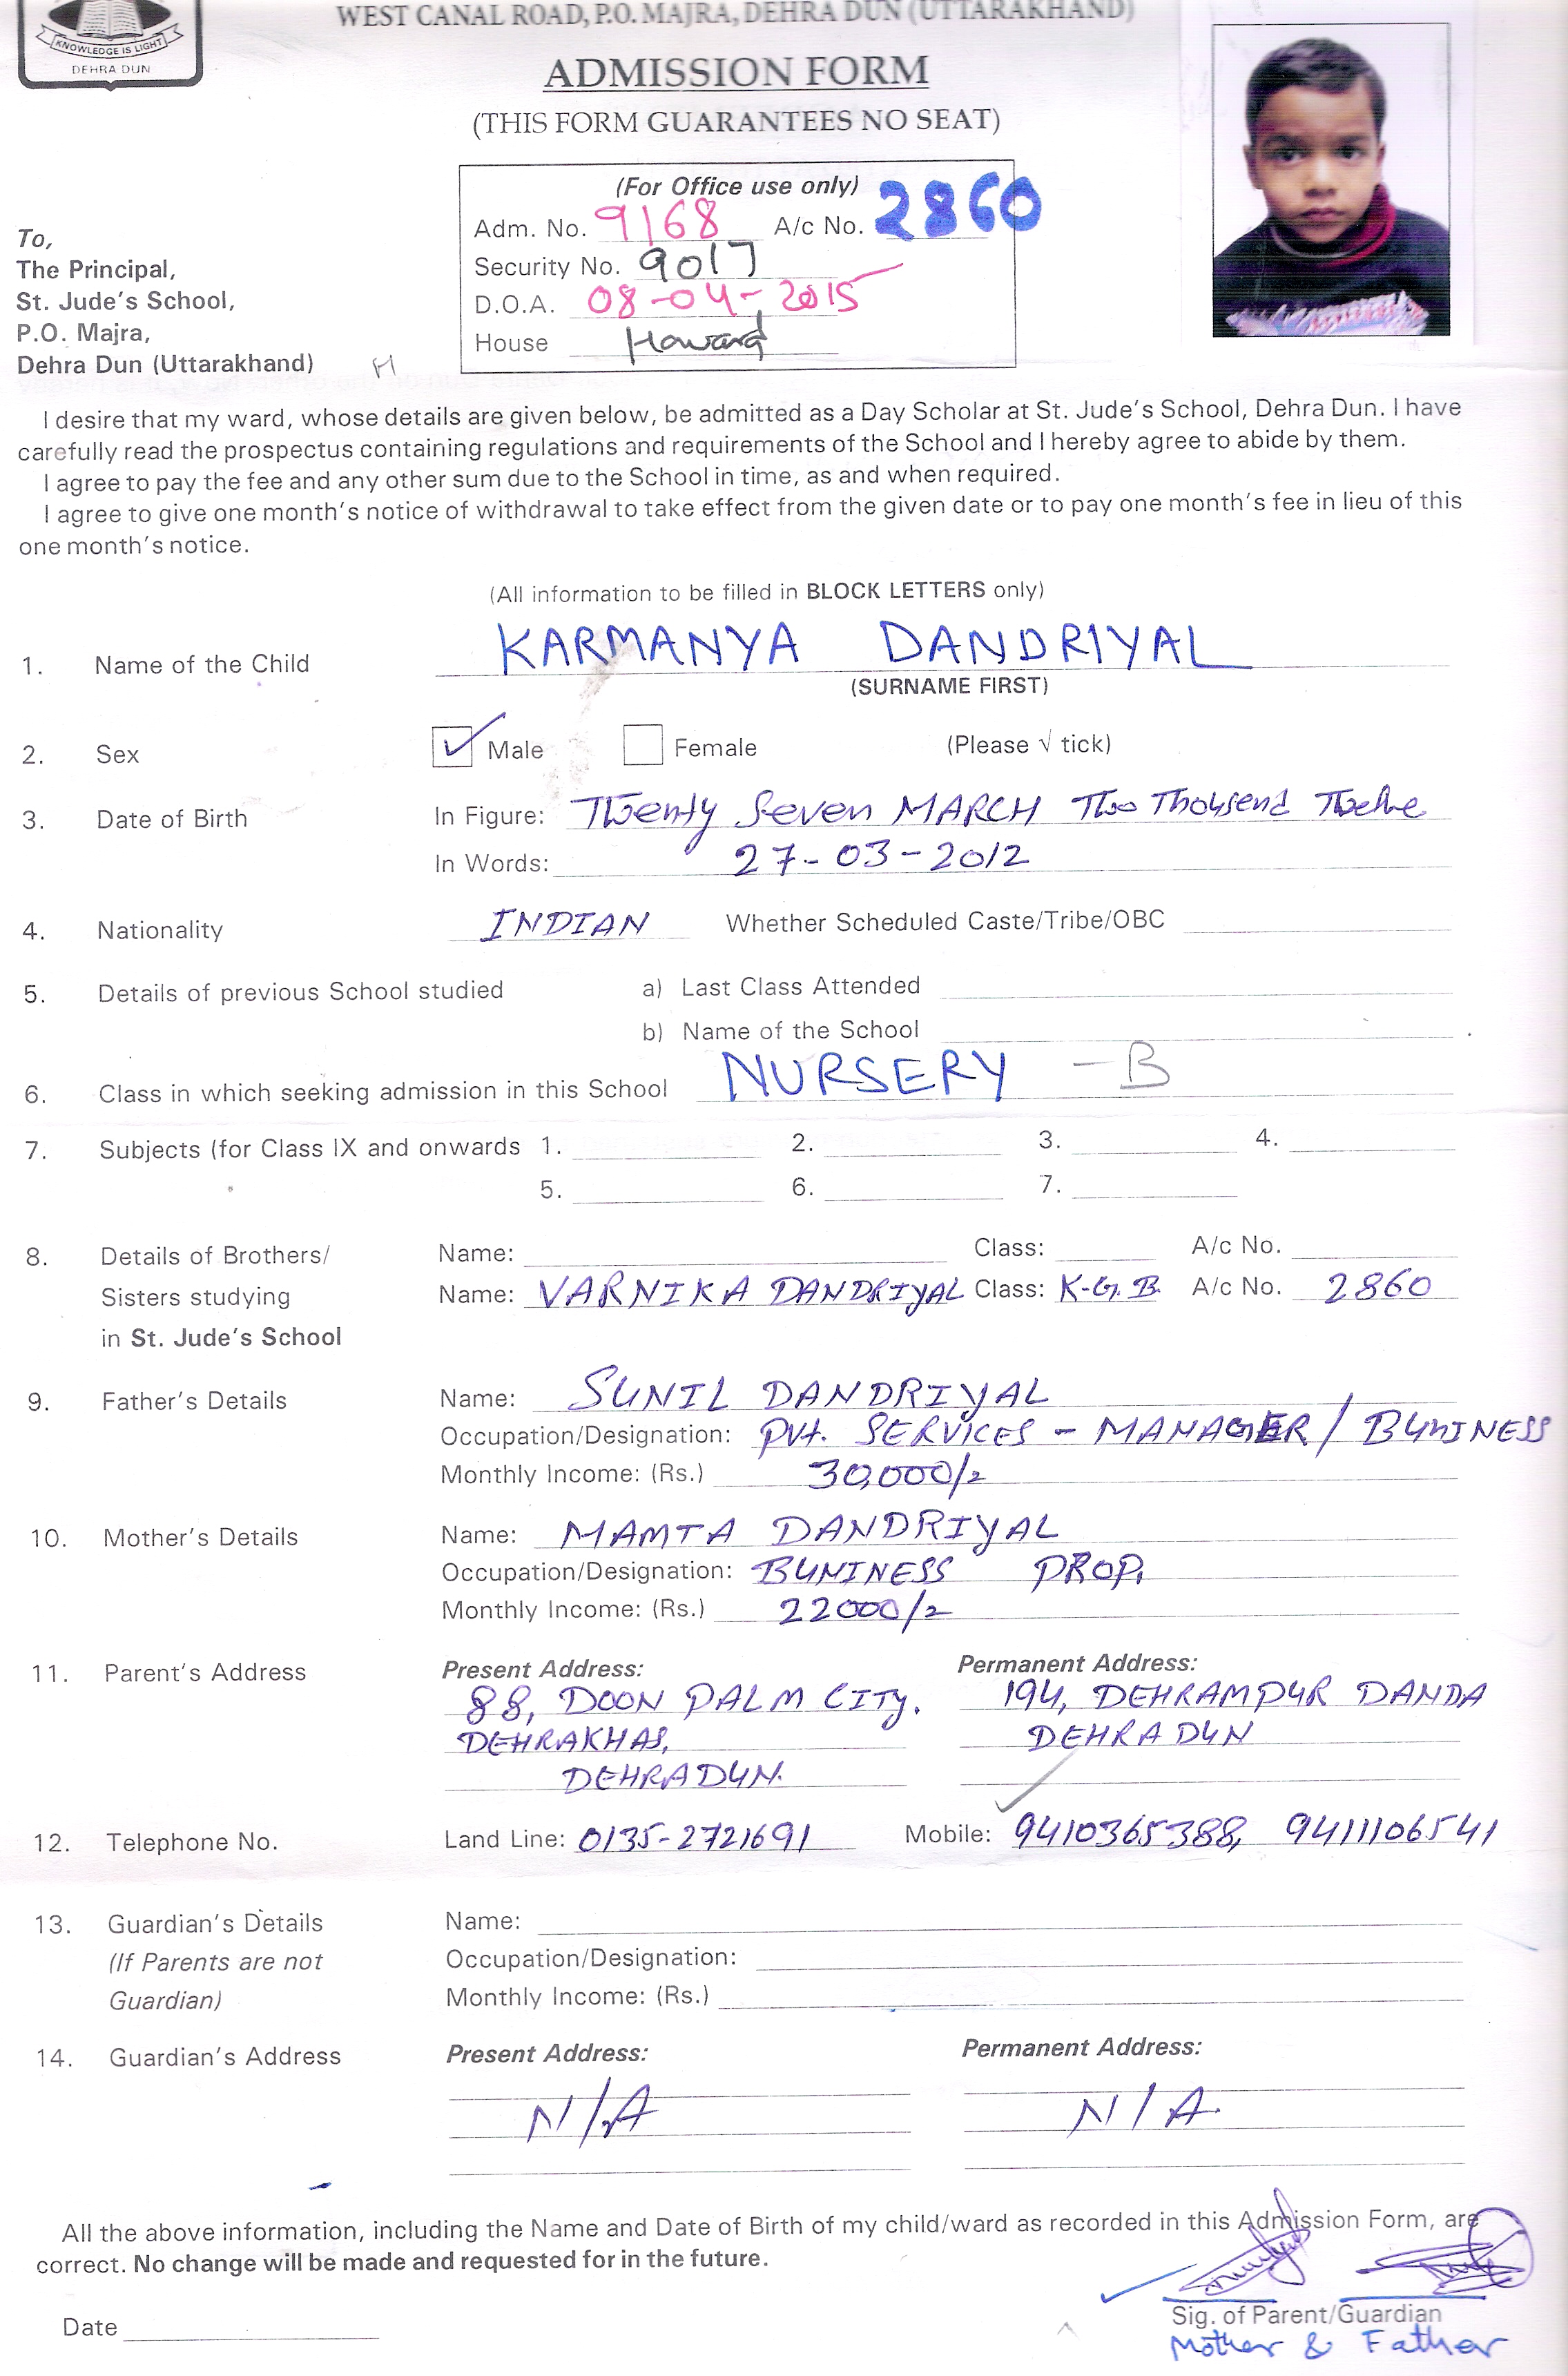 WEST CANAL ROAD, P.O. MAJRA, DEHRA DUN (UTTARAKHAND)
KNOWLEDGE IS LIGHT
DEHRA DUN
ADMISSION FORM
(THIS FORM GUARANTEES NO SEAT)
(For Office use only)
Adm. No. 9168 A/c No. 2860
Security No. 9017
D.O.A. 08-04-2015
House Howard
To,
The Principal,
St. Jude's School,
P.O. Majra,
Dehra Dun (Uttarakhand) H
I desire that my ward, whose details are given below, be admitted as a Day Scholar at St. Jude's School, Dehra Dun. I have
carefully read the prospectus containing regulations and requirements of the School and I hereby agree to abide by them.
I agree to pay the fee and any other sum due to the School in time, as and when required.
I agree to give one month's notice of withdrawal to take effect from the given date or to pay one month's fee in lieu of this
one month's notice.
(All information to be filled in BLOCK LETTERS only)
1. Name of the Child KARMANYA DANDRIYAL
(SURNAME FIRST)
2. Sex ✓ Male Female (Please √ tick)
3. Date of Birth In Figure: Twenty Seven MARCH Two Thousend Twelve
In Words: 27-03-2012
4. Nationality INDIAN Whether Scheduled Caste/Tribe/OBC
5. Details of previous School studied a) Last Class Attended
b) Name of the School
6. Class in which seeking admission in this School NURSERY - B
7. Subjects (for Class IX and onwards 1. 2. 3. 4.
5. 6. 7.
8. Details of Brothers/ Name: Class: A/c No.
Sisters studying Name: VARNIKA DANDRIYAL Class: K-G. B. A/c No. 2860
in St. Jude's School
9. Father's Details Name: SUNIL DANDRIYAL
Occupation/Designation: Pvt. SERVICES - MANAGER / BUNINESS
Monthly Income: (Rs.) 30,000/=
10. Mother's Details Name: MAMTA DANDRIYAL
Occupation/Designation: BUNINESS PROP.
Monthly Income: (Rs.) 22000/=
11. Parent's Address Present Address: Permanent Address:
88, DOON PALM CITY. 194, DEHRAMPUR DANDA
DEHRAKHAS, DEHRADUN
DEHRADUN.
12. Telephone No. Land Line: 0135-2721691 Mobile: 9410365388, 9411106541
13. Guardian's Details Name:
(If Parents are not Occupation/Designation:
Guardian) Monthly Income: (Rs.)
14. Guardian's Address Present Address: Permanent Address:
N/A N/A.
All the above information, including the Name and Date of Birth of my child/ward as recorded in this Admission Form, are
correct. No change will be made and requested for in the future.
Date Sig. of Parent/Guardian
Mother & Father